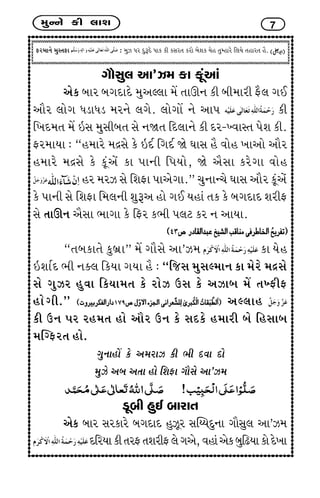 મુન્ને કી લાશ 7
ફરમાને મુસ્તફા صَلَّى اللهُ تَعَالٰى عَلَيْهِ وَاٰلِهٖ وَسَلَّم : મુઝ પર દુરૂદે પાક કી કસરત કરો બેશક યેહ તુમ્હારે લિયે તહારત હૈ.
ગૌસુલ આ'ઝમ કા કૂંઆં
એક બાર બગદાદે મુઅલ્લા મેં તાઊન કી બીમારી ફૈલ ગઈ
ઔર લોગ ધડાધડ મરને લગે. લોગોં ને આપ رَحْمَةُ اللهِ تَعَالٰى عَلَيْهِ કી
ખિદમત મેં ઇસ મુસીબત સે નજાત દિલાને કી દર-ખ્વાસ્ત પેશ કી.
ફરમાયા : “હમારે મદ્રસે કે ઇર્દ ગિર્દ જો ઘાસ હૈ વોહ ખાઓ ઔર
હમારે મદ્રસે કે કૂંએં કા પાની પિયો, જો ઐસા કરેગા વોહ
اِنْ شَآءَ اللّٰه عَزَّوَجَلَّ હર મરઝ સે શિફા પાએગા.” ચુનાન્ચે ઘાસ ઔર કૂંએં
કે પાની સે શિફા મિલની શુરૂઅ હો ગઈ યહાં તક કે બગદાદ શરીફ
સે તાઊન ઐસા ભાગા કે ફિર કભી પલટ કર ન આયા.
(تفريحُ الخاطر في مناقب الشيخ عبدالقادر ص٤٣)
“તબકાતે કુબ્રા” મેં ગૌસે આ'ઝમ عَلَيْهِ رَحْمَةُ اللهِ الْاَكْرَم કા યેહ
ઇર્શાદ ભી નક્લ કિયા ગયા હૈ : “જિસ મુસલ્માન કા મેરે મદ્રસે
સે ગુઝર હુવા કિયામત કે રોઝ ઉસ કે અઝાબ મેં તખ્ફીફ
હોગી.” (اَلطَّبَقَاتُ الْكُبْرىٰ لِلشَّعراني الجزء الاوّل ص١٧٩ دارالفكربيروت) અલ્લાહ عَزَّوَجَلَّ
કી ઉન પર રહમત હો ઔર ઉન કે સદકે હમારી બે હિસાબ
મગ્ફિરત હો.
ગુનાહોં કે અમરાઝ કી ભી દવા દો
મુઝે અબ અતા હો શિફા ગૌસે આ'ઝમ
صَلُّوْا عَلَى الْحَبِيْب ! صَلَّى اللهُ تَعَالٰى عَلٰى مُحَمَّد
ડૂબી હુઈ બારાત
એક બાર સરકારે બગદાદ હુઝૂર સય્યિદુના ગૌસુલ આ'ઝમ
عَلَيْهِ رَحْمَةُ اللهِ الْاَكْرَم દરિયા કી તરફ તશરીફ લે ગએ, વહાં એક બુઢિયા કો દેખા